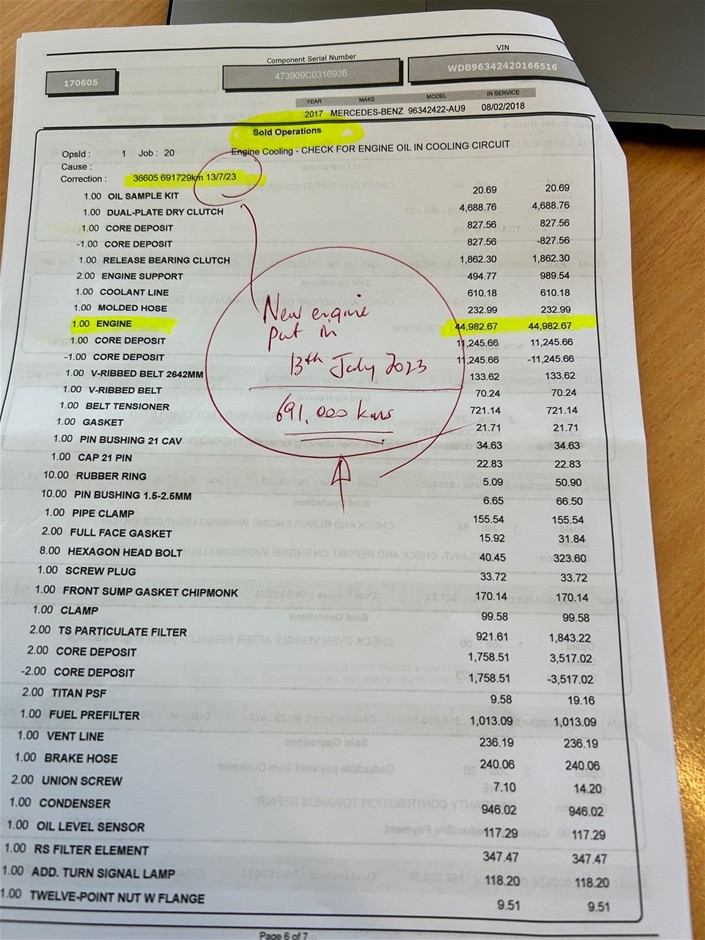 Component Serial Number
VIN
170605
473909C0316936
WDB96342420166516
YEAR MAKE MODEL IN SERVICE
2017 MERCEDES-BENZ 96342422-AU9 08/02/2018
Sold Operations
OpsId : 1 Job : 20 Engine Cooling - CHECK FOR ENGINE OIL IN COOLING CIRCUIT
Cause :
Correction : 36605 691729km 13/7/23
1.00 OIL SAMPLE KIT 20.69 20.69
1.00 DUAL-PLATE DRY CLUTCH 4,688.76 4,688.76
1.00 CORE DEPOSIT 827.56 827.56
-1.00 CORE DEPOSIT 827.56 -827.56
1.00 RELEASE BEARING CLUTCH 1,862.30 1,862.30
2.00 ENGINE SUPPORT 494.77 989.54
1.00 COOLANT LINE 610.18 610.18
1.00 MOLDED HOSE 232.99 232.99
1.00 ENGINE 44,982.67 44,982.67
1.00 CORE DEPOSIT 11,245.66 11,245.66
-1.00 CORE DEPOSIT 11,245.66 -11,245.66
1.00 V-RIBBED BELT 2642MM 133.62 133.62
1.00 V-RIBBED BELT 70.24 70.24
1.00 BELT TENSIONER 721.14 721.14
1.00 GASKET 21.71 21.71
1.00 PIN BUSHING 21 CAV 34.63 34.63
1.00 CAP 21 PIN 22.83 22.83
10.00 RUBBER RING 5.09 50.90
10.00 PIN BUSHING 1.5-2.5MM 6.65 66.50
1.00 PIPE CLAMP 155.54 155.54
2.00 FULL FACE GASKET 15.92 31.84
8.00 HEXAGON HEAD BOLT 40.45 323.60
1.00 SCREW PLUG 33.72 33.72
1.00 FRONT SUMP GASKET CHIPMONK 170.14 170.14
1.00 CLAMP 99.58 99.58
2.00 TS PARTICULATE FILTER 921.61 1,843.22
2.00 CORE DEPOSIT 1,758.51 3,517.02
-2.00 CORE DEPOSIT 1,758.51 -3,517.02
2.00 TITAN PSF 9.58 19.16
1.00 FUEL PREFILTER 1,013.09 1,013.09
1.00 VENT LINE 236.19 236.19
1.00 BRAKE HOSE 240.06 240.06
2.00 UNION SCREW 7.10 14.20
1.00 CONDENSER 946.02 946.02
1.00 OIL LEVEL SENSOR 117.29 117.29
1.00 RS FILTER ELEMENT 347.47 347.47
1.00 ADD. TURN SIGNAL LAMP 118.20 118.20
1.00 TWELVE-POINT NUT W FLANGE 9.51 9.51
New engine
put in
13th July 2023
691,000 kms
Page 6 of 7